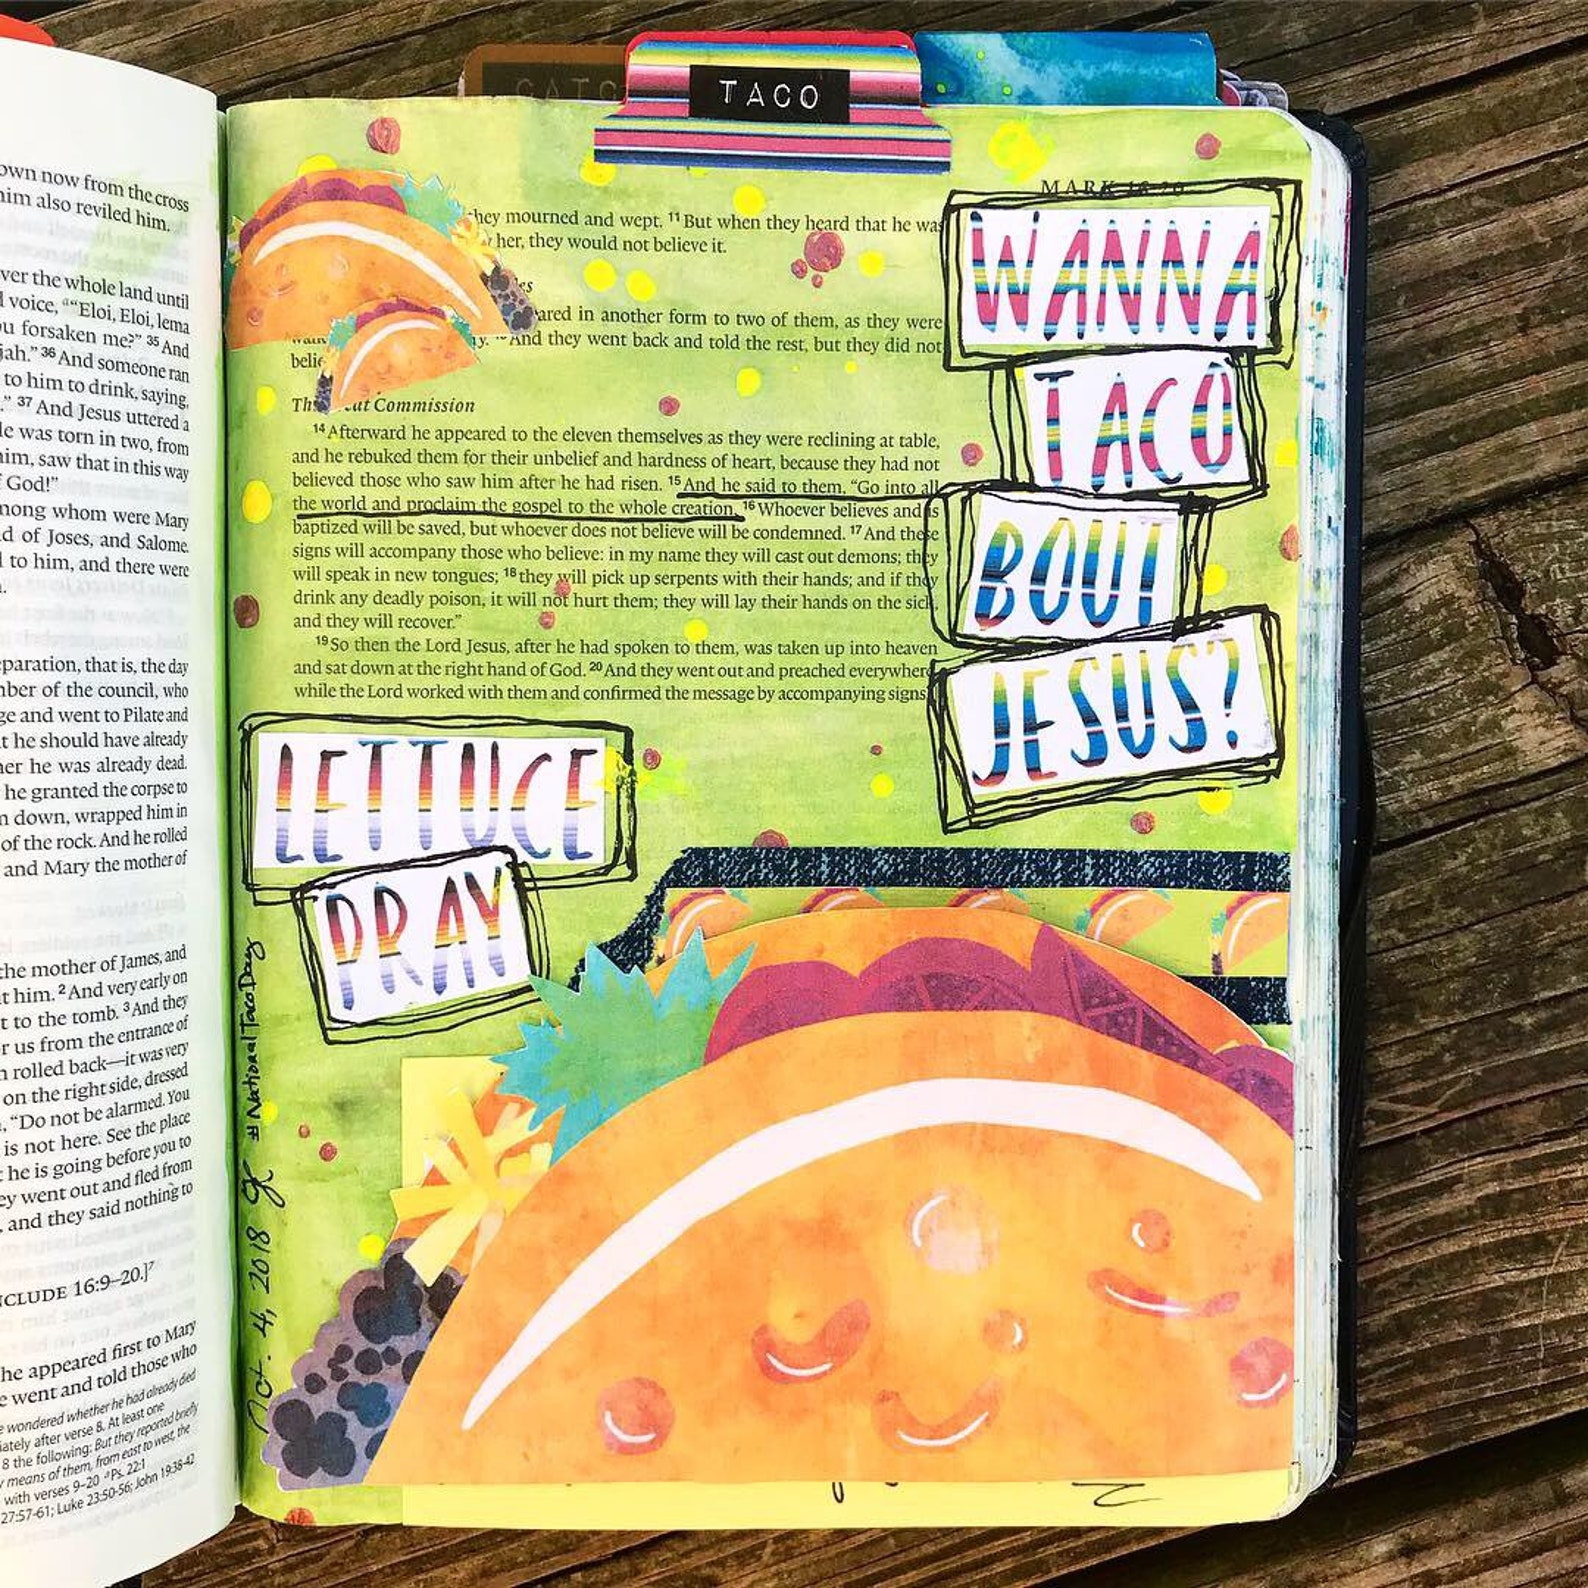 own now from the cross
him also reviled him.
ver the whole land until
voice, a“Eloi, Eloi, lema
u forsaken me?” 35 And
jah.” 36 And someone ran
to him to drink, saying,
37 And Jesus uttered a
le was torn in two, from
him, saw that in this way
God!”
mong whom were Mary
d of Joses, and Salome.
to him, and there were
eparation, that is, the day
ber of the council, who
ge and went to Pilate and
t he should have already
her he was already dead.
he granted the corpse to
n down, wrapped him in
of the rock. And he rolled
and Mary the mother of
the mother of James, and
t him. 2 And very early on
t to the tomb. 3 And they
r us from the entrance of
n rolled back—it was very
on the right side, dressed
“Do not be alarmed. You
is not here. See the place
t he is going before you to
ey went out and fled from
, and they said nothing to
NCLUDE 16:9–20.]7
he appeared first to Mary
e went and told those who
e wondered whether he had already died
iately after verse 8. At least one
8 the following: But they reported briefly
y means of them, from east to west, the
with verses 9–20 a Ps. 22:1
27:57-61; Luke 23:50-56; John 19:38-42
TACO
MARK 16:20
they mourned and wept. 11 But when they heard that he was
her, they would not believe it.
ared in another form to two of them, as they were
And they went back and told the rest, but they did not
belie
The Great Commission
14 Afterward he appeared to the eleven themselves as they were reclining at table,
and he rebuked them for their unbelief and hardness of heart, because they had not
believed those who saw him after he had risen. 15 And he said to them, “Go into all
the world and proclaim the gospel to the whole creation. 16 Whoever believes and is
baptized will be saved, but whoever does not believe will be condemned. 17 And these
signs will accompany those who believe: in my name they will cast out demons; they
will speak in new tongues; 18 they will pick up serpents with their hands; and if they
drink any deadly poison, it will not hurt them; they will lay their hands on the sick,
and they will recover.”
19 So then the Lord Jesus, after he had spoken to them, was taken up into heaven
and sat down at the right hand of God. 20 And they went out and preached everywhere,
while the Lord worked with them and confirmed the message by accompanying signs.
WANNA
TACO
BOUT
JESUS?
LETTUCE
PRAY
Oct. 4, 2018 #NationalTacoDay